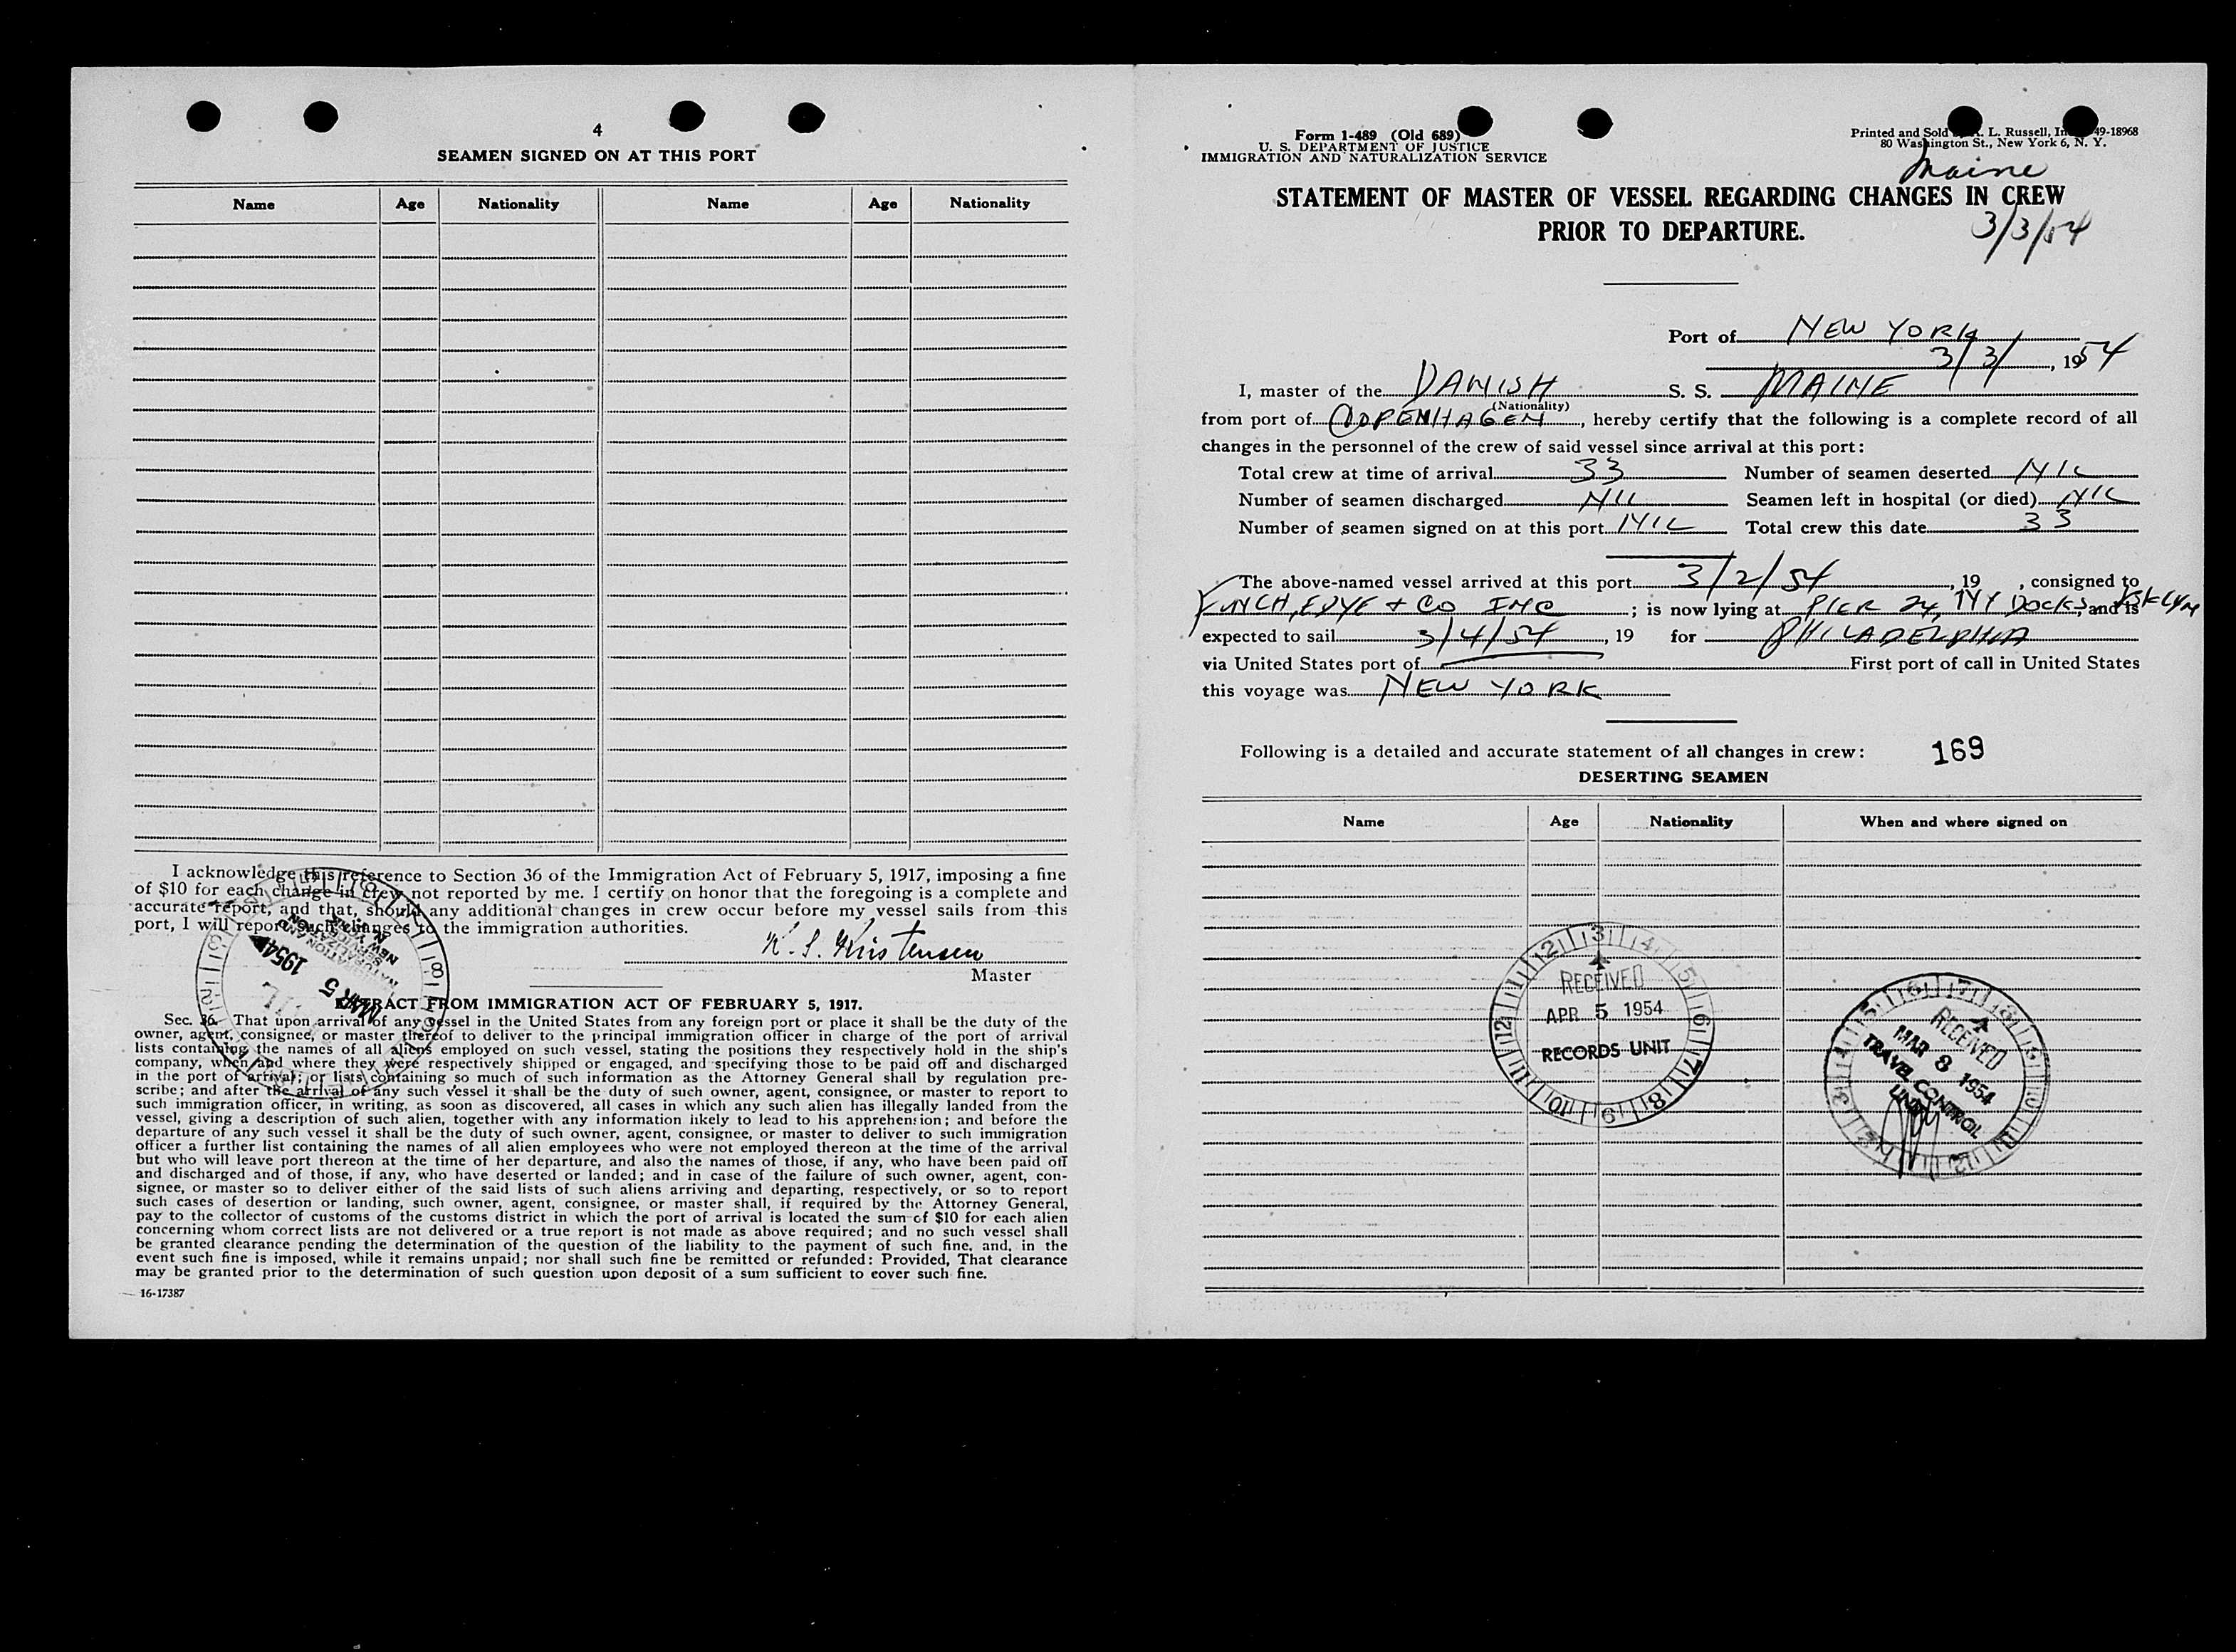 4
SEAMEN SIGNED ON AT THIS PORT
Name Age Nationality Name Age Nationality
I acknowledge this reference to Section 36 of the Immigration Act of February 5, 1917, imposing a fine
of $10 for each change in crew not reported by me. I certify on honor that the foregoing is a complete and
accurate report, and that, should any additional changes in crew occur before my vessel sails from this
port, I will report such changes to the immigration authorities.
K. S. Kristensen
Master
EXTRACT FROM IMMIGRATION ACT OF FEBRUARY 5, 1917.
Sec. 36. That upon arrival of any vessel in the United States from any foreign port or place it shall be the duty of the
owner, agent, consignee, or master thereof to deliver to the principal immigration officer in charge of the port of arrival
lists containing the names of all aliens employed on such vessel, stating the positions they respectively hold in the ship's
company, when and where they were respectively shipped or engaged, and specifying those to be paid off and discharged
in the port of arrival; or lists containing so much of such information as the Attorney General shall by regulation pre-
scribe; and after the arrival of any such vessel it shall be the duty of such owner, agent, consignee, or master to report to
such immigration officer, in writing, as soon as discovered, all cases in which any such alien has illegally landed from the
vessel, giving a description of such alien, together with any information likely to lead to his apprehension; and before the
departure of any such vessel it shall be the duty of such owner, agent, consignee, or master to deliver to such immigration
officer a further list containing the names of all alien employees who were not employed thereon at the time of the arrival
but who will leave port thereon at the time of her departure, and also the names of those, if any, who have been paid off
and discharged and of those, if any, who have deserted or landed; and in case of the failure of such owner, agent, con-
signee, or master so to deliver either of the said lists of such aliens arriving and departing, respectively, or so to report
such cases of desertion or landing, such owner, agent, consignee, or master shall, if required by the Attorney General,
pay to the collector of customs of the customs district in which the port of arrival is located the sum of $10 for each alien
concerning whom correct lists are not delivered or a true report is not made as above required; and no such vessel shall
be granted clearance pending the determination of the question of the liability to the payment of such fine, and, in the
event such fine is imposed, while it remains unpaid; nor shall such fine be remitted or refunded: Provided, That clearance
may be granted prior to the determination of such question upon deposit of a sum sufficient to cover such fine.
16-17387
MAR 5 1954
Form 1-489 (Old 689)
U. S. DEPARTMENT OF JUSTICE
IMMIGRATION AND NATURALIZATION SERVICE
Printed and Sold L. Russell, 49-18968
80 Washington St., New York 6, N. Y.
Maine
STATEMENT OF MASTER OF VESSEL REGARDING CHANGES IN CREW
PRIOR TO DEPARTURE.
3/3/54
Port of NEW YORK
3/3/, 1954
I, master of the DANISH S. S. MAINE
(Nationality)
from port of COPENHAGEN, hereby certify that the following is a complete record of all
changes in the personnel of the crew of said vessel since arrival at this port:
Total crew at time of arrival 33 Number of seamen deserted NIL
Number of seamen discharged NIL Seamen left in hospital (or died) NIL
Number of seamen signed on at this port NIL Total crew this date 33
The above-named vessel arrived at this port 3/2/54, 19 , consigned to
FUNCH, EDYE + CO INC ; is now lying at PIER 24, NY DOCKS, BKLYN and is
expected to sail 3/4/54, 19 for PHILADELPHIA
via United States port of First port of call in United States
this voyage was NEW YORK
Following is a detailed and accurate statement of all changes in crew: 169
DESERTING SEAMEN
Name Age Nationality When and where signed on
RECEIVED
APR 5 1954
RECORDS UNIT
RECEIVED
MAR 8 1954
TRAVEL CONTROL
UNIT